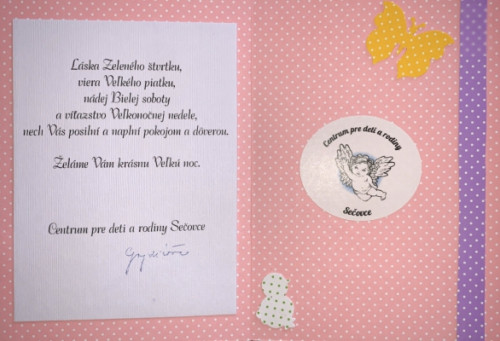 Láska Zeleného štvrtku,
viera Veľkého piatku,
nádej Bielej soboty
a víťazstvo Veľkonočnej nedele,
nech Vás posilní a naplní pokojom a dôverou.
Želáme Vám krásnu Veľkú noc.
Centrum pre deti a rodiny Sečovce
Centrum pre deti a rodiny
Sečovce